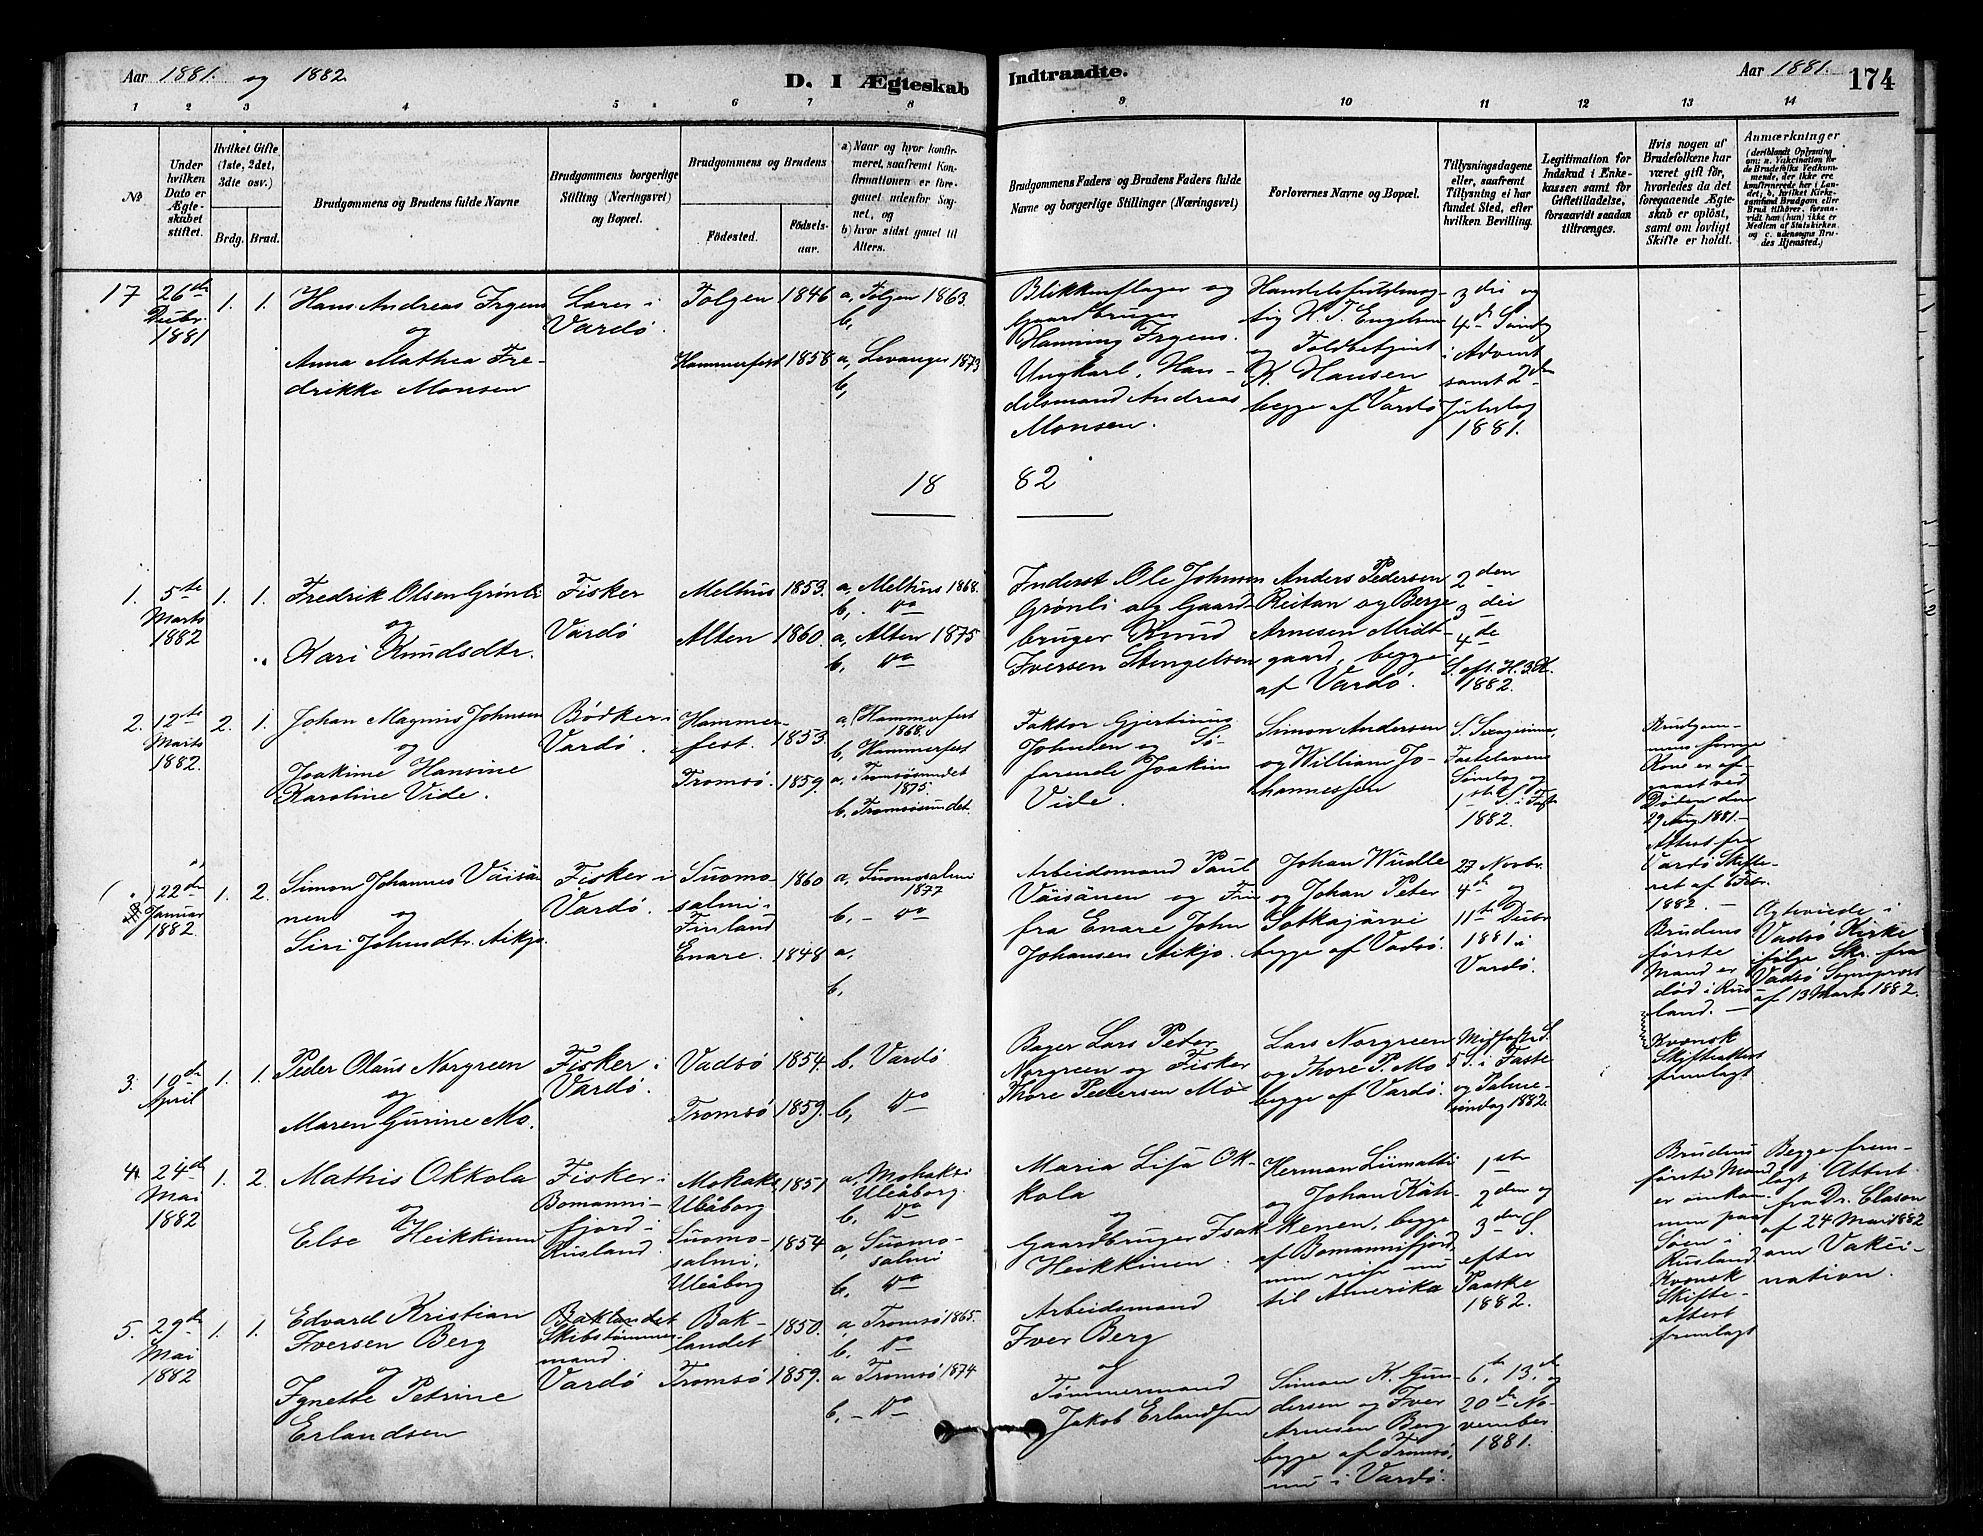 Aar 1881. og 1882.
D. I Ægteskab
Indtraadte.
Aar 1881.
174
1 2 3 4 5 6 7 8 9 10 11 12 13 14
No
Under
hvilken
Dato er
Ægte-
skabet
stiftet.
Hvilket Gifte
(1ste, 2det,
3die osv.)
Brdg. Brud.
Brudgommens og Brudens fulde Navne
Brudgommens borgerlige
Stilling (Næringsvei)
og Bopæl.
Brudgommens og Brudens
Födested.
Födsels-
aar.
a) Naar og hvor konfir-
meret, saafremt Kon-
firmationen er fore-
gaaet udenfor Sog-
net, og
b) hvor sidst gaaet til
Alters.
Brudgommens Faders og Brudens Faders fulde
Navne og borgerlige Stillinger (Næringsvei)
Forlovernes Navne og Bopæl.
Tillysningsdagene
eller, saafremt
Tillysning ei har
fundet Sted, efter
hvilken Bevilling.
Legitimation for
Indskud i Ænke-
kassen samt for
Giftetilladelse,
forsaavidt saadan
tiltrænges.
Hvis nogen af
Brudefolkene har
været gift för,
hvorledes da det
foregaaende Ægte-
skab er oplöst,
samt om lovligt
Skifte er holdt.
Anmærkninger
(deriblandt Oplysning
om: a. Vakcination for
de Brudefolks Vedkom-
mende, der ikke ere
konfirmerede her i Lan-
det; b. hvilket Kirke-
samfund Brudgom eller
Brud tilhörer, forsaa-
vidt han (hun) ikke er
Medlem af Statskirken
og c. udensogns Bru-
des Hjemsted.)
17
26de
Decbr.
1881
1. 1.
Hans Andreas Irgens
og
Anna Mathea Fre-
drikke Monsen
Lærer i
Vardö.
Tolgen 1846
a, Tolgen 1863.
b,
Hammerfest 1858
a, Levanger 1873
b,
Blikkenslager og
Gaardbruger
Henning Irgens.
Ungkarl, Han-
delsmand Andreas
Monsen.
Handelsfuldmæg-
tig H. T. Engelsen
og Toldbetjent
K. Hansen
begge af Vardö
3die og
4de Söndag
i Advent
samt 2den
Juledag
1881.
18 82
1.
5te
Marts
1882
1. 1.
Fredrik Olsen Grönli
og
Kari Knudsdtr.
Fisker
Vardö
Melhus 1853.
a, Melhus 1868.
b, Do
Alten 1860.
a, Alten 1875
b, Do
Inderst Ole Johnsen
Grönli og Gaard-
bruger Knud
Iversen Stengelsen
Anders Pedersen
Reitan og Berge
Arnesen Midt-
gaard, begge
af Vardö.
2den
3die
4de
S. eft. H. 3 K.
1882.
2.
12te
Marts
1882.
2. 1.
Johan Magnus Johnsen
og
Joakime Hansine
Karoline Vide.
Bödker i
Vardö.
Hammer-
fest. 1853.
a, Hammerfest
1868.
b, Hammerfest
Tromsö. 1859.
a, Tromsösundet
1875.
b, Tromsösundet.
Faktor Gjertinus
Johnsen og Sö-
farende Joakim
Vide.
Simon Andersen
og William Jo-
hannessen
S. Sexagesima,
Fastelavens
Söndag og
1ste S. i Faste
1882.
Brudgom-
mens forrige
Kone er af-
gaaet ved
Döden den
29 Aug. 1881.
Attest fra
Vardö Skifte-
ret af Febr.
1882.
22de
Januar
1882.
1. 2.
Simon Johannes Väisä-
nen og
Siri Johnsdtr. Aikjo.
Fisker i
Vardö.
Suomo-
salmi
Finland
1860
a, Suomosalmi
1877
b, - Do
Enare. 1848
a,
b,
Arbeidsmand Paul
Väisänen og Fin
fra Enare John
Johansen Aikjo.
Johan Wualle
og Johan Peter
Sotkajärvi
begge af Vadsö.
27 Novbr.
4de og
11te Decbr
1881 i
Vardö.
Brudens
förste
Mand er
död i Rus-
land.
Kvænsk
Skifteattest
fremlagt
Ægteviede i
Vadsö Kirke
ifölge Skr. fra
Vadsö Sogneprest
af 13 Marts 1882.
3.
10de
April
1. 1.
Peder Olaus Norgreen
og
Maren Gurine Mo.
Fisker i
Vardö.
Vadsö 1854.
b, Vardö
Tromsö 1859.
b, Do
Bager Lars Peter
Norgreen og Fisker
Thore Pedersen Mo
Lars Norgreen
og Thore P. Mo
begge af Vardö.
Midfaste S.
5 S. i Faste
og Palme-
söndag 1882.
4.
24de
Mai
1882
1. 2.
Mathis Okkola
og
Else Heikkinen
Fisker i
Bomanni-
fjord i
Rusland.
Mohaks
Uleåborg
1851
a, Mohaksi
Uleåborg.
b, Do
Suomo-
salmi,
Uleåborg
1854
a, Suomo-
salmi
b, Do
Maria Lisa Ok-
kola
og
Gaardbruger Isak
Heikkinen.
Herman Liimatti
og Johan Käh-
kenen, begge
af Bomannifjord,
nu
til Amerika
1ste
2den og
3die S.
efter
Paaske
1882.
Brudens
förste Mand
er omkom-
men paa
Söen i
Rusland.
Kvænsk
Skifte-
attest
fremlagt
Begge frem-
lagt Attest
fra Dr. Clason
af 24 Mai 1882
om Vakci-
nation.
5.
29de
Mai
1882
1. 1.
Edvard Kristian
Iversen Berg
og
Ignette Petrine
Erlandsen
Baklandet
Skibstömmer-
mand.
Vardö
Bak-
landet
1850.
a, Tromsö 1865.
b. Do
Tromsö 1859.
a Tromsö 1874
b. - Do
Arbeidsmand
Iver Berg
og
Tömmermand
Jakob Erlandsen
Simon K. Gun-
dersen og Iver
Arnesen Berg
begge af Tromsö,
nu i Vardö.
6te, 13de og
20de No-
vember
1881.